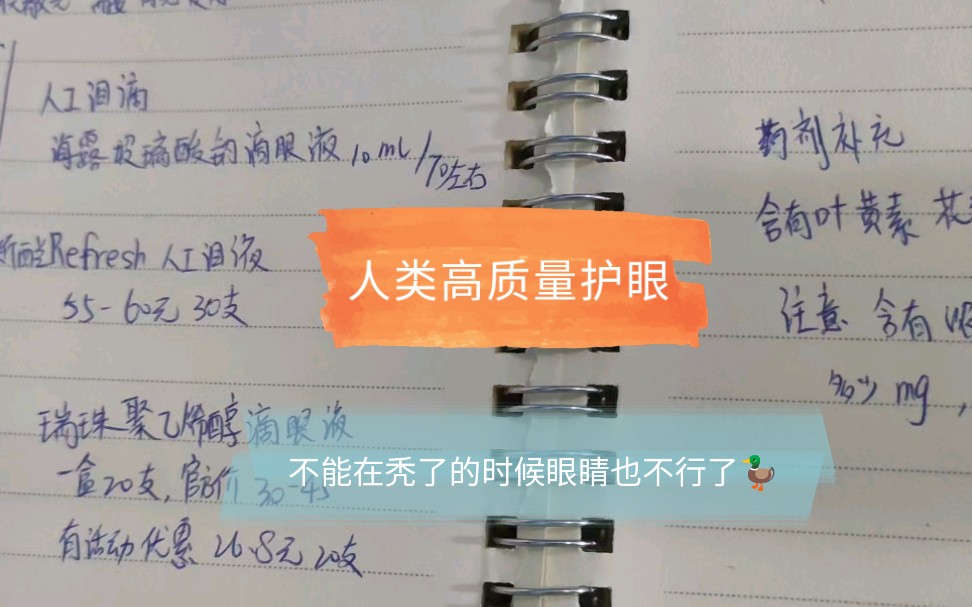 人工泪滴
海露玻璃酸钠滴眼液 10ml/70左右
Refresh 人工泪液
55-60元 30支
瑞珠聚乙烯醇滴眼液
一盒20支, 官方价 30-45
有活动优惠 26.8元 20支
药剂补充
含有叶黄素 花
注意 含有
多少 mg,
人类高质量护眼
不能在秃了的时候眼睛也不行了🦆